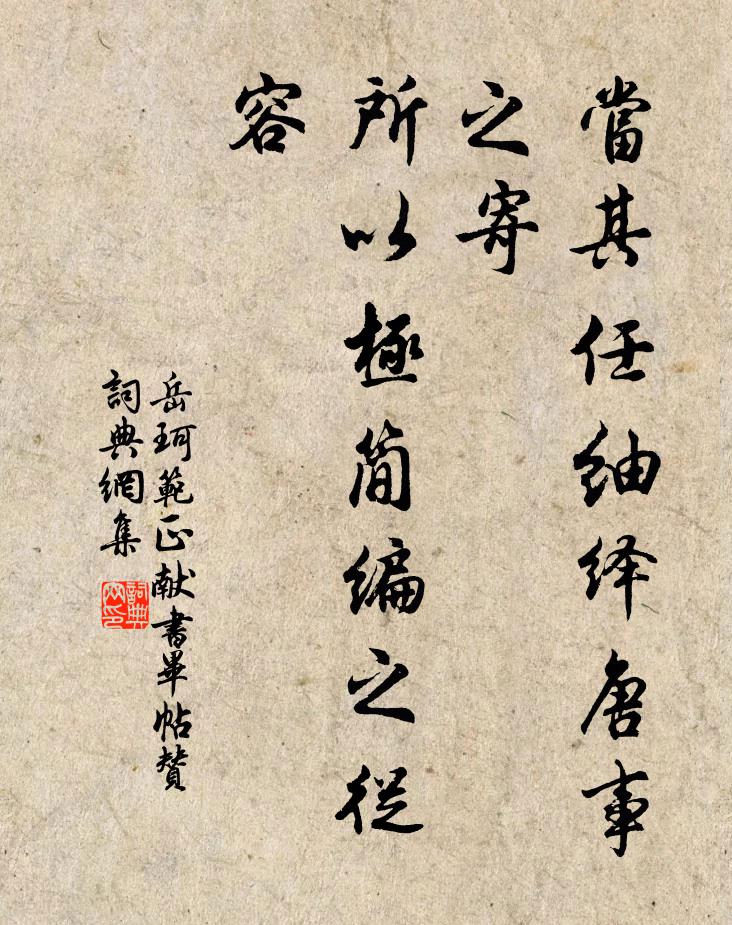 當其任紬绎唐事
之寄
所以極简编之從
容
岳珂範正献書畢帖贊
詞典網集
詞典网印